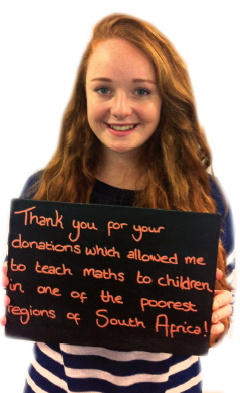 Thank you for your
donations which allowed me
to teach maths to children
in one of the poorest
regions of South Africa!